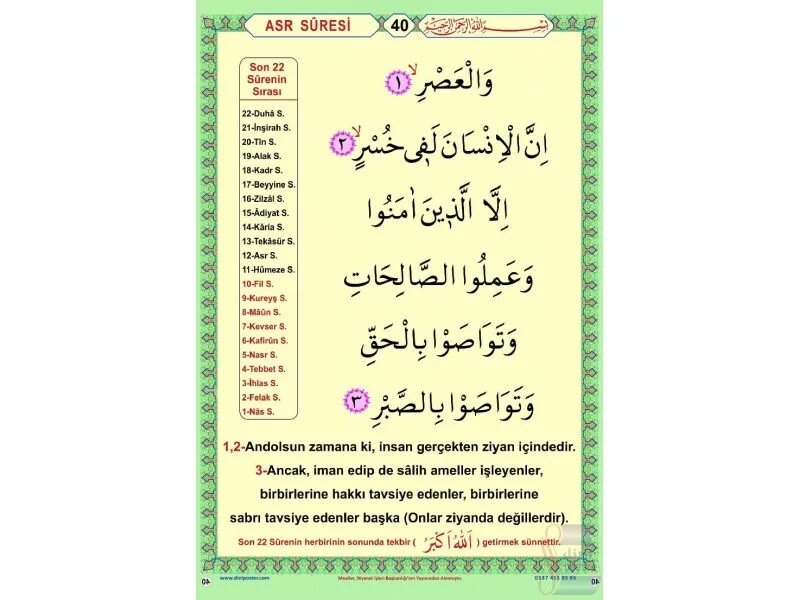 ASR SÛRESİ
40
بِسْمِ اللّٰهِ الرَّحْمٰنِ الرَّحِيمِ
Son 22
Sûrenin
Sırası
22-Duhâ S.
21-İnşirah S.
20-Tîn S.
19-Alak S.
18-Kadr S.
17-Beyyine S.
16-Zilzâl S.
15-Âdiyat S.
14-Kâria S.
13-Tekâsür S.
12-Asr S.
11-Hümeze S.
10-Fil S.
9-Kureyş S.
8-Mâûn S.
7-Kevser S.
6-Kafirûn S.
5-Nasr S.
4-Tebbet S.
3-İhlas S.
2-Felak S.
1-Nâs S.
وَالْعَصْرِۙ ١
اِنَّ الْاِنْسَانَ لَف۪ي خُسْرٍۙ ٢
اِلَّا الَّذ۪ينَ اٰمَنُوا
وَعَمِلُوا الصَّالِحَاتِ
وَتَوَاصَوْا بِالْحَقِّ
وَتَوَاصَوْا بِالصَّبْرِ ٣
1,2-Andolsun zamana ki, insan gerçekten ziyan içindedir.
3-Ancak, iman edip de sâlih ameller işleyenler,
birbirlerine hakkı tavsiye edenler, birbirlerine
sabrı tavsiye edenler başka (Onlar ziyanda değillerdir).
Son 22 Sûrenin herbirinin sonunda tekbir ( اَللّٰهُ اَكْبَرُ ) getirmek sünnettir.
40
www.diniposter.com
Mealler, Diyanet İşleri Başkanlığı'nın Yayınından Alınmıştır.
0537 455 95 95
40